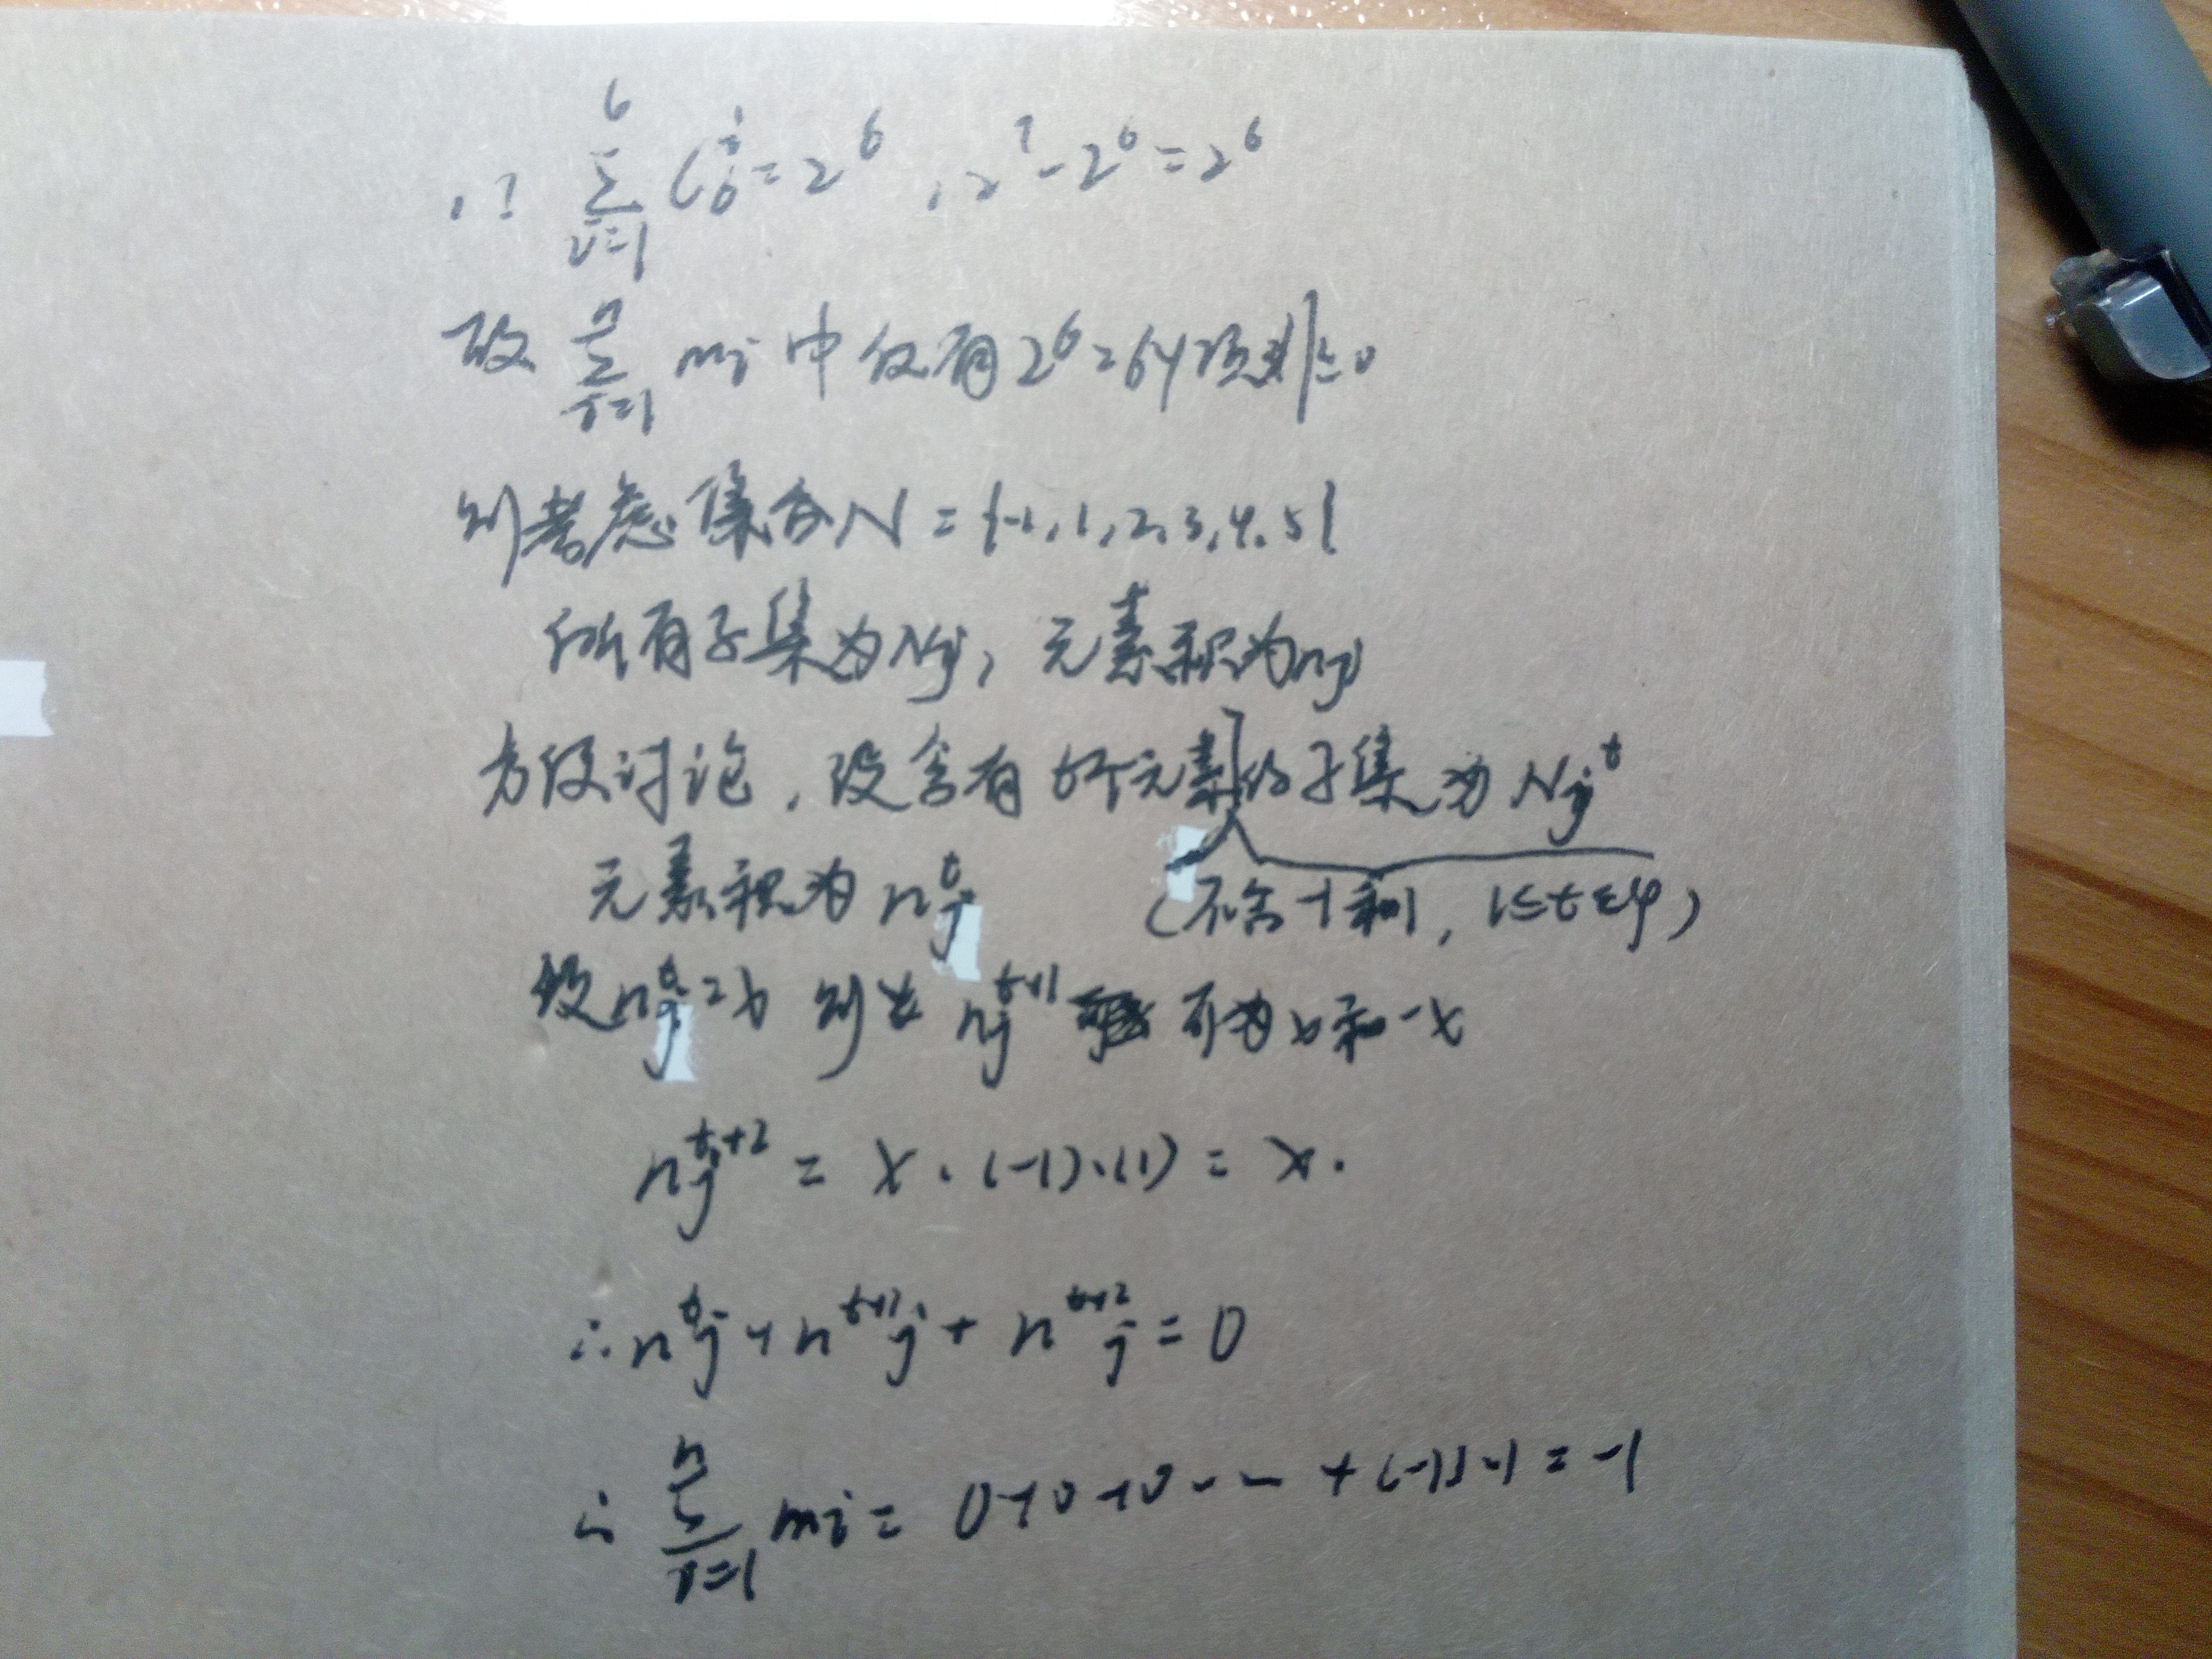 ∵ ∑_{i=1}^{6} C_6^i = 2^6 , 2^7 - 2^6 = 2^6
故 ∑_{i=1}^{n} mi 中仅有 2^6 = 64 项 ≠ 0
则考虑集合 N = {-1, 1, 2, 3, 4, 5}
所有子集为 Nj, 元素积为 nj
方便讨论, 设含有 t个元素的子集为 Nj^t
元素积为 nj^t (不含-1和1, 1≤t≤4)
设 nj^t = x 则 nj^{t+1} 可为 x 和 -x
nj^{t+2} = x · (-1) · (1) = -x.
∴ nj^t + nj^{t+1} + nj^{t+2} = 0
∴ ∑_{i=1}^{n} mi = 0+0+0 -- + (-1)·1 = -1